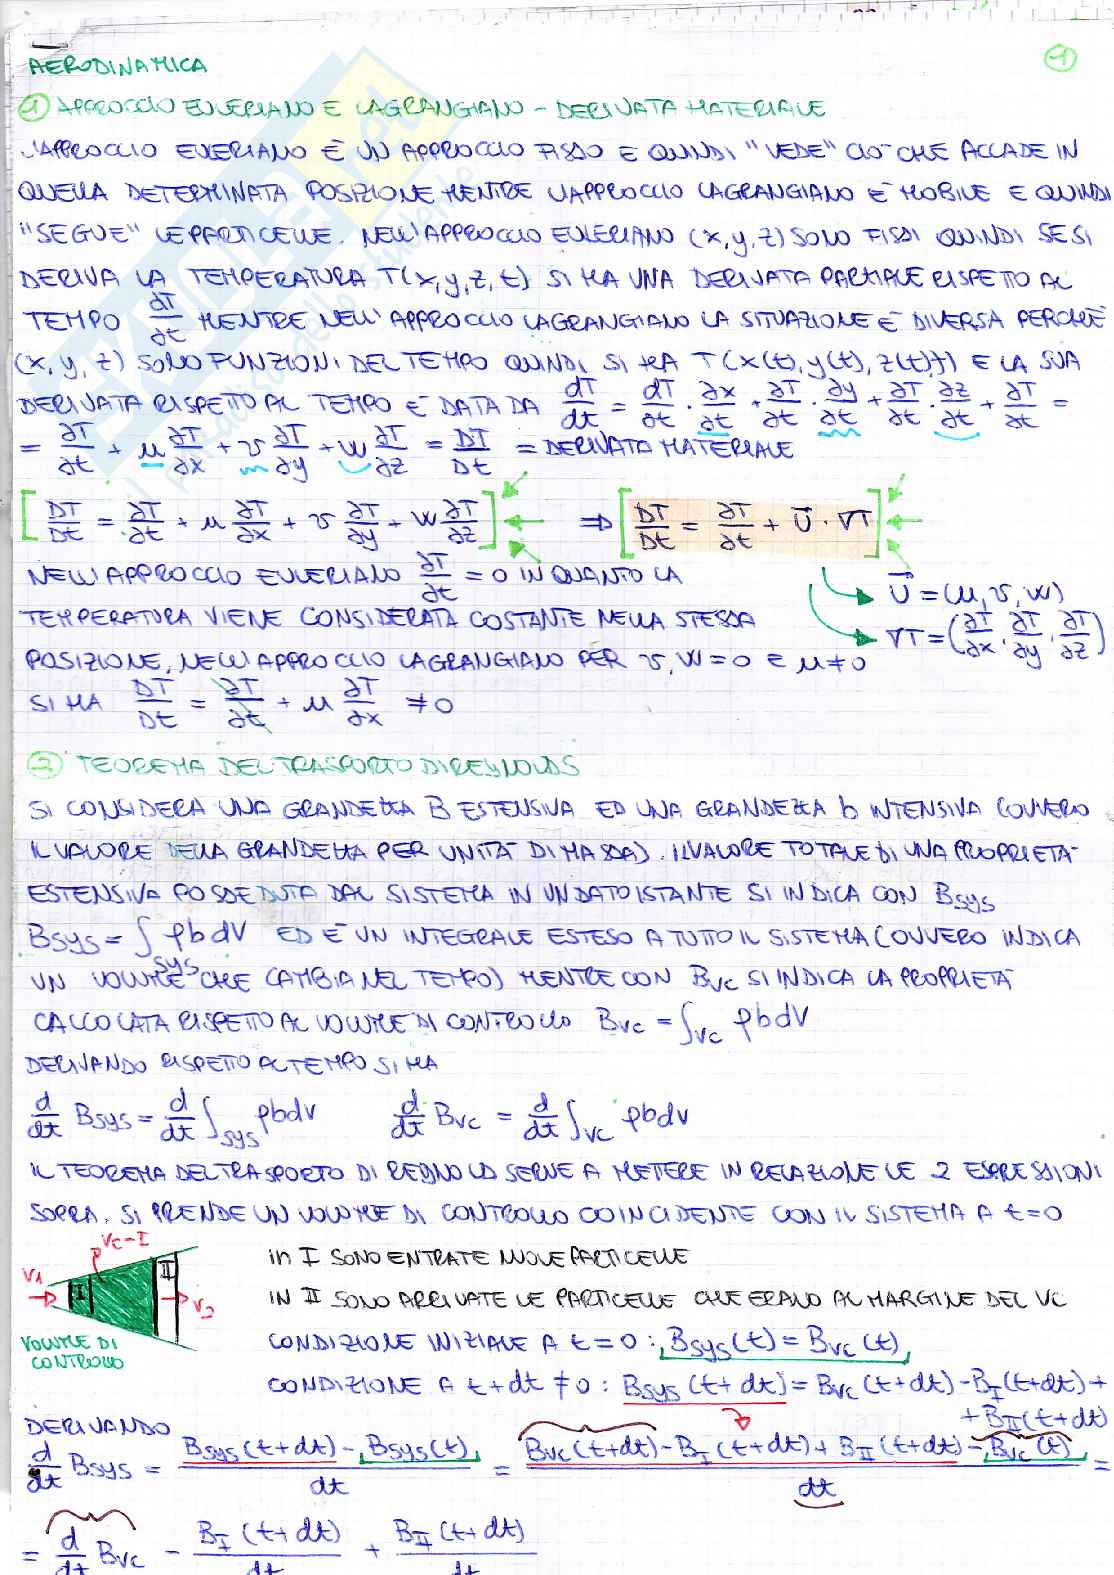 AERODINAMICA
1
1 APPROCCIO EULERIANO E LAGRANGIANO - DERIVATA MATERIALE
L'APPROCCIO EULERIANO È UN APPROCCIO FISSO E QUINDI "VEDE" CIÒ CHE ACCADE IN
QUELLA DETERMINATA POSIZIONE MENTRE L'APPROCCIO LAGRANGIANO È MOBILE E QUINDI
"SEGUE" LE PARTICELLE. NELL'APPROCCIO EULERIANO (x,y,z) SONO FISSI QUINDI SE SI
DERIVA LA TEMPERATURA T(x,y,z,t) SI HA UNA DERIVATA PARZIALE RISPETTO AL
TEMPO ∂T/∂t MENTRE NELL'APPROCCIO LAGRANGIANO LA SITUAZIONE È DIVERSA PERCHÈ
(x,y,z) SONO FUNZIONI DEL TEMPO QUINDI SI HA T(x(t),y(t),z(t),t) E LA SUA
DERIVATA RISPETTO AL TEMPO È DATA DA dT/dt = ∂T/∂t · ∂x/∂t + ∂T/∂t · ∂y/∂t + ∂T/∂t · ∂z/∂t + ∂T/∂t =
= ∂T/∂t + u ∂T/∂x + v ∂T/∂y + w ∂T/∂z = DT/Dt = DERIVATA MATERIALE
[DT/Dt = ∂T/∂t + u ∂T/∂x + v ∂T/∂y + w ∂T/∂z] ⇒ [DT/Dt = ∂T/∂t + U⃗ · ∇T]
NELL'APPROCCIO EULERIANO ∂T/∂t = 0 IN QUANTO LA
U⃗ = (u, v, w)
TEMPERATURA VIENE CONSIDERATA COSTANTE NELLA STESSA
∇T = (∂T/∂x, ∂T/∂y, ∂T/∂z)
POSIZIONE, NELL'APPROCCIO LAGRANGIANO PER v, w = 0 e u ≠ 0
SI HA DT/Dt = ∂T/∂t + u ∂T/∂x ≠ 0
2 TEOREMA DEL TRASPORTO DI REYNOLDS
SI CONSIDERA UNA GRANDEZZA B ESTENSIVA ED UNA GRANDEZZA b INTENSIVA (OVVERO
IL VALORE DELLA GRANDEZZA PER UNITÀ DI MASSA). IL VALORE TOTALE DI UNA PROPRIETÀ
ESTENSIVA POSSEDUTA DAL SISTEMA IN UN DATO ISTANTE SI INDICA CON Bsys
Bsys = ∫sys ρbdV ED È UN INTEGRALE ESTESO A TUTTO IL SISTEMA (OVVERO INDICA
UN VOLUME CHE CAMBIA NEL TEMPO) MENTRE CON Bvc SI INDICA LA PROPRIETÀ
CALCOLATA RISPETTO AL VOLUME DI CONTROLLO Bvc = ∫vc ρbdV
DERIVANDO RISPETTO AL TEMPO SI HA
d/dt Bsys = d/dt ∫sys ρbdV d/dt Bvc = d/dt ∫vc ρbdV
IL TEOREMA DEL TRASPORTO DI REYNOLD SERVE A METTERE IN RELAZIONE LE 2 ESPRESSIONI
SOPRA. SI PRENDE UN VOLUME DI CONTROLLO COINCIDENTE CON IL SISTEMA A t=0
VC-I
V1
I
II
V2
VOLUME DI
CONTROLLO
IN I SONO ENTRATE NUOVE PARTICELLE
IN II SONO ARRIVATE LE PARTICELLE CHE ERANO AL MARGINE DEL VC
CONDIZIONE INIZIALE A t=0: Bsys(t) = Bvc(t)
CONDIZIONE A t+dt ≠ 0: Bsys(t+dt) = Bvc(t+dt) - BI(t+dt) +
+ BII(t+dt)
DERIVANDO
d/dt Bsys = (Bsys(t+dt) - Bsys(t))/dt = (Bvc(t+dt) - BI(t+dt) + BII(t+dt) - Bvc(t))/dt =
= d/dt Bvc - BI(t+dt)/dt + BII(t+dt)/dt